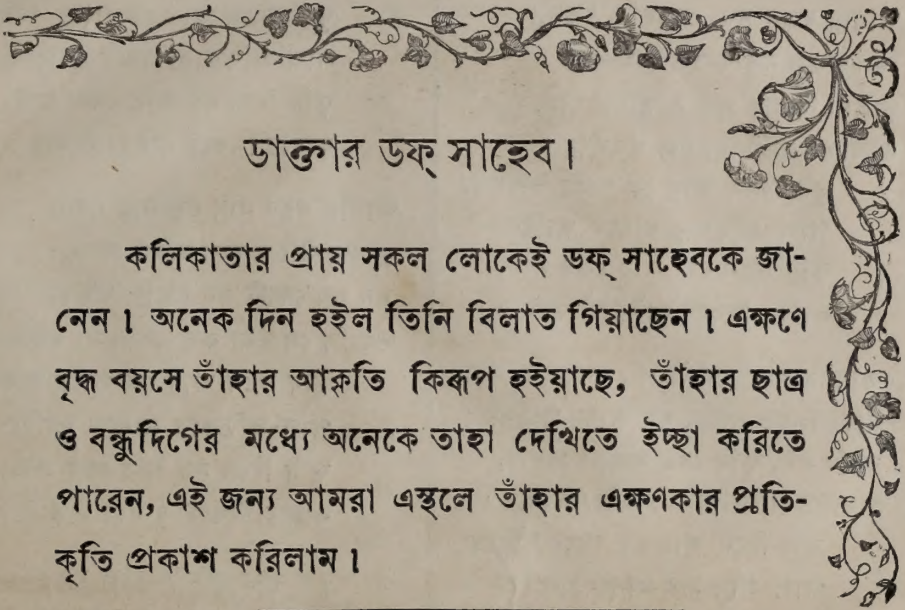 ডাক্তার ডফ্ সাহেব।
কলিকাতার প্রায় সকল লোকেই ডফ্ সাহেবকে জা-
নেন। অনেক দিন হইল তিনি বিলাত গিয়াছেন। এক্ষণে
বৃদ্ধ বয়সে তাঁহার আকৃতি কিরূপ হইয়াছে, তাঁহার ছাত্র
ও বন্ধুদিগের মধ্যে অনেকে তাহা দেখিতে ইচ্ছা করিতে
পারেন, এই জন্য আমরা এস্থলে তাঁহার এক্ষণকার প্রতি-
কৃতি প্রকাশ করিলাম।